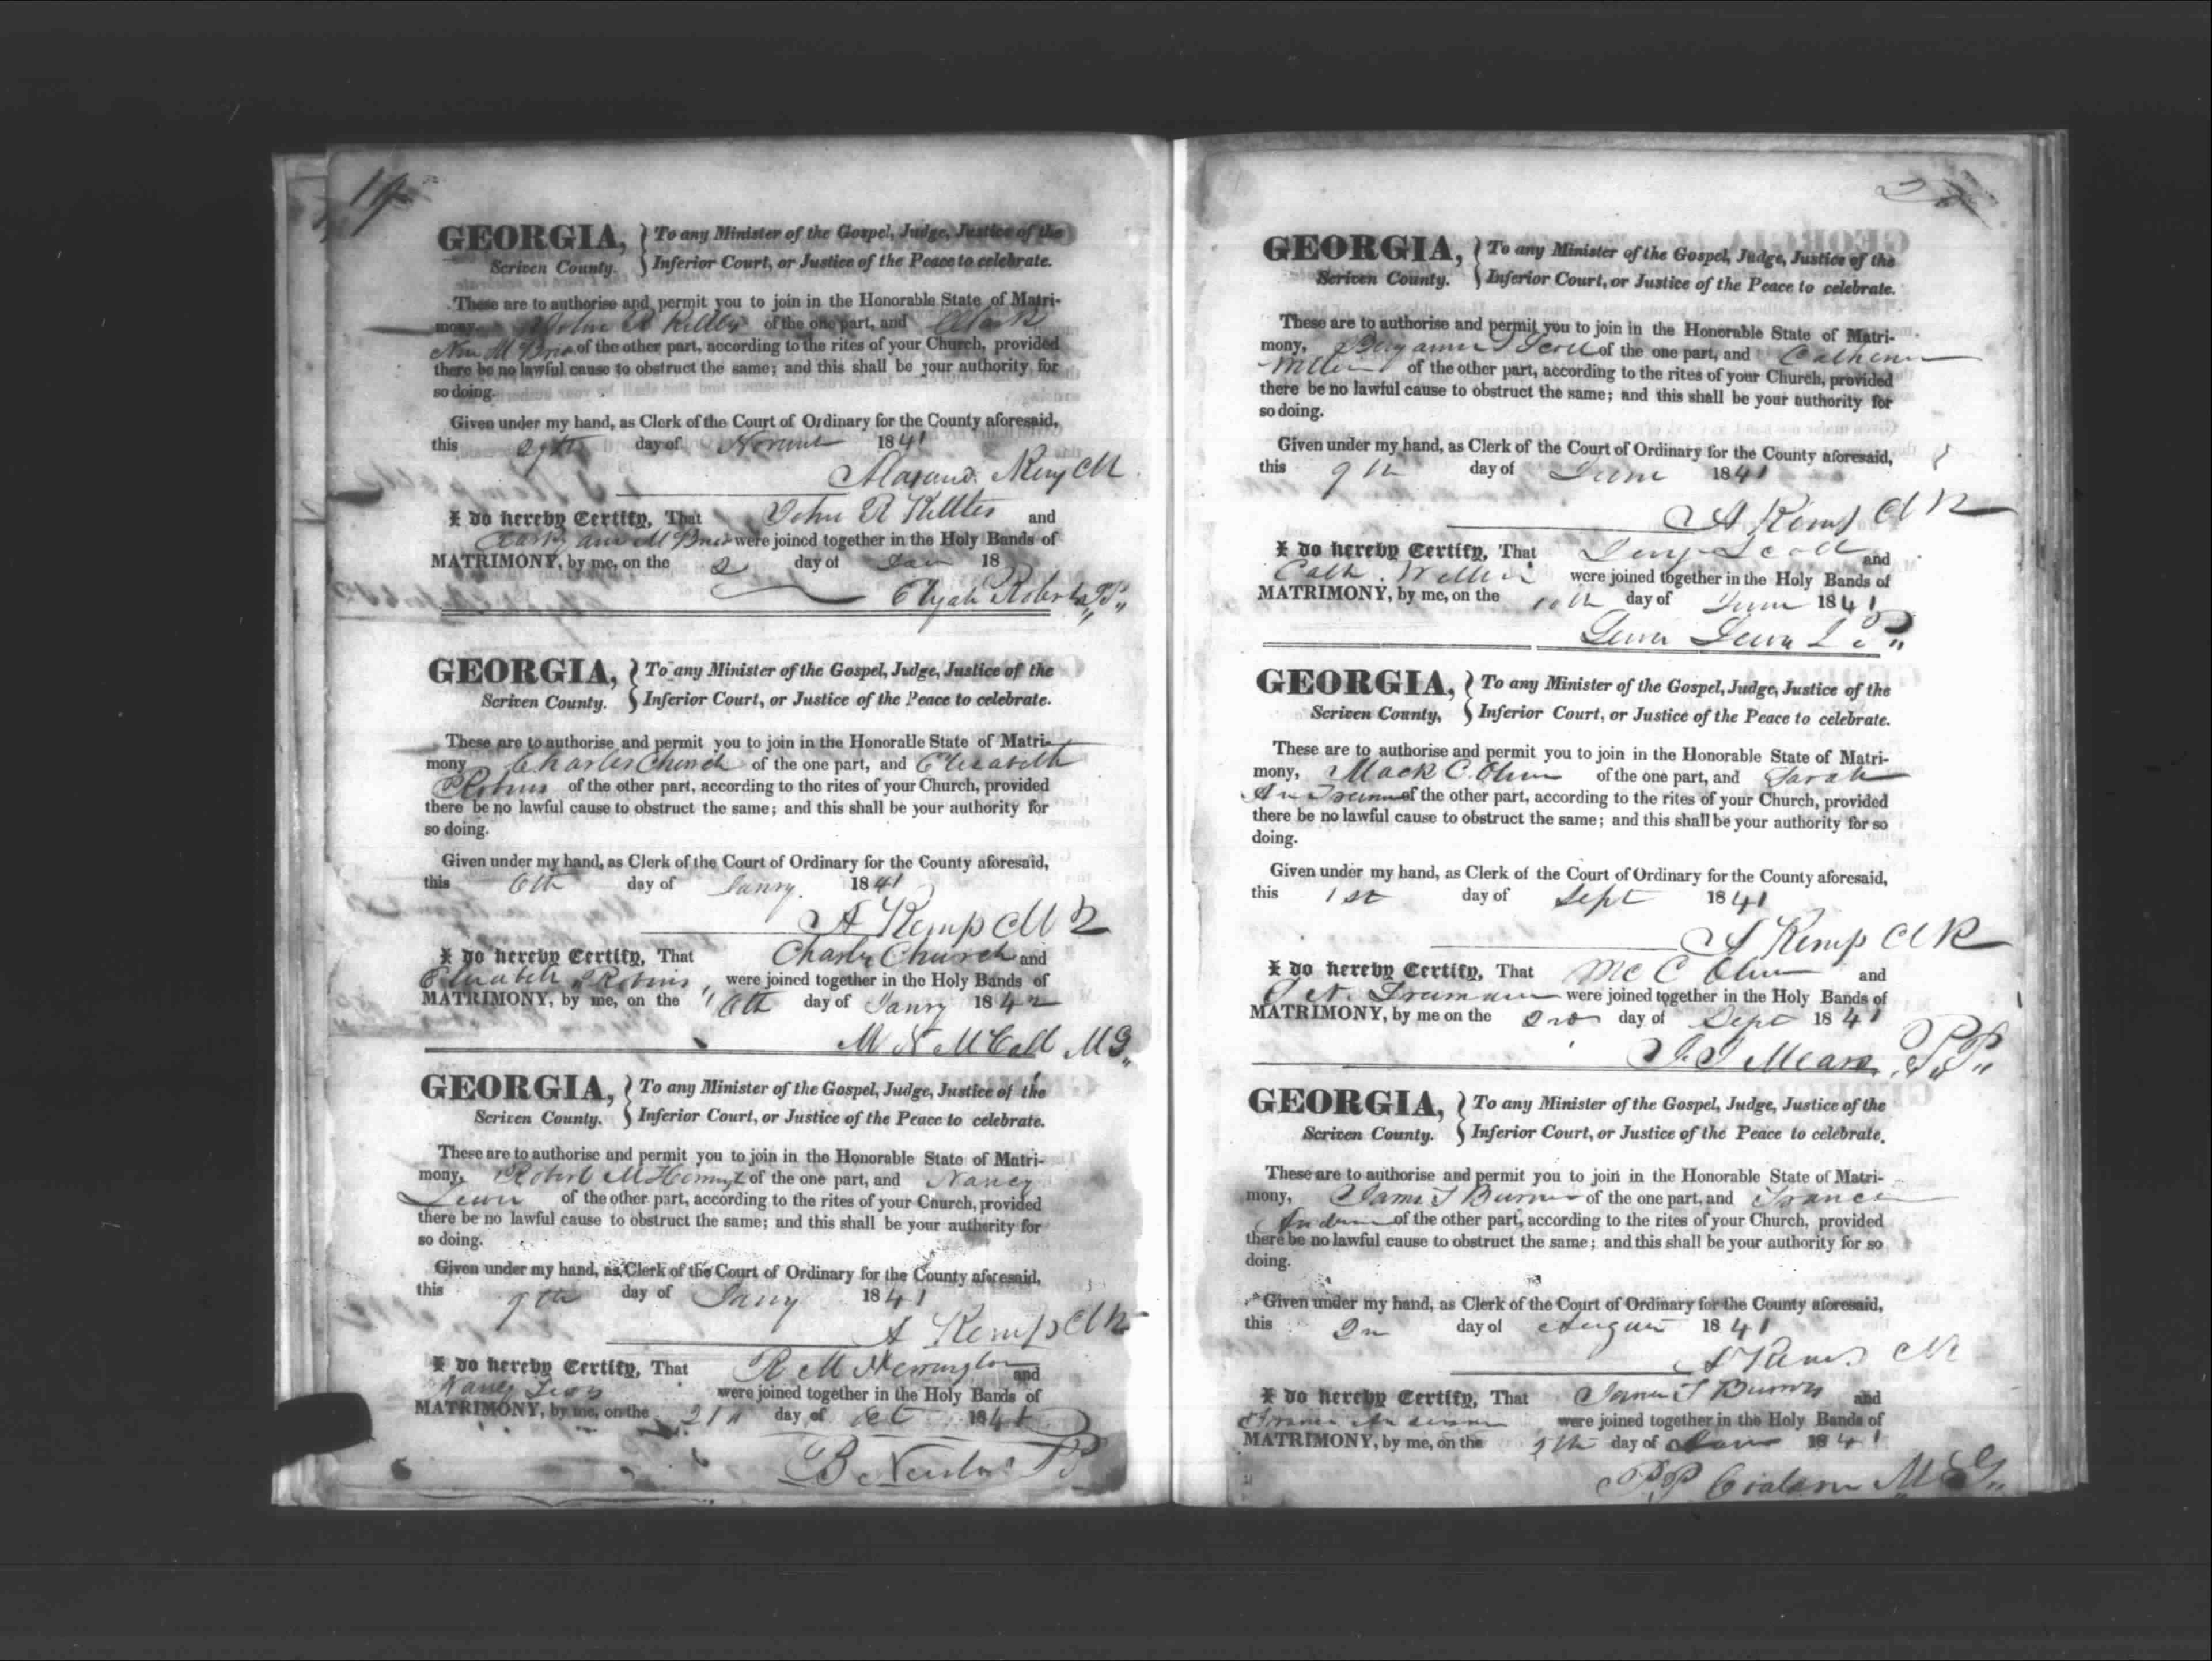 19
GEORGIA, To any Minister of the Gospel, Judge, Justice of the
Scriven County. Inferior Court, or Justice of the Peace to celebrate.
These are to authorise and permit you to join in the Honorable State of Matri-
mony, John R of the one part, and
of the other part, according to the rites of your Church, provided
there be no lawful cause to obstruct the same; and this shall be your authority for
so doing.
Given under my hand, as Clerk of the Court of Ordinary for the County aforesaid,
this 29th day of 1841
I do hereby Certify, That John R and
were joined together in the Holy Bands of
MATRIMONY, by me, on the 2 day of 18
Elijah Roberts
GEORGIA, To any Minister of the Gospel, Judge, Justice of the
Scriven County. Inferior Court, or Justice of the Peace to celebrate.
These are to authorise and permit you to join in the Honorable State of Matri-
mony Charles Church of the one part, and Elizabeth
Robins of the other part, according to the rites of your Church, provided
there be no lawful cause to obstruct the same; and this shall be your authority for
so doing.
Given under my hand, as Clerk of the Court of Ordinary for the County aforesaid,
this 6th day of Janry. 1841
A Kemp
I do hereby Certify, That Charles Church and
Elizabeth Robins were joined together in the Holy Bands of
MATRIMONY, by me, on the 6th day of Janry 1842
M N McCall M G
GEORGIA, To any Minister of the Gospel, Judge, Justice of the
Scriven County. Inferior Court, or Justice of the Peace to celebrate.
These are to authorise and permit you to join in the Honorable State of Matri-
mony, Robert M of the one part, and Nancy
Lewis of the other part, according to the rites of your Church, provided
there be no lawful cause to obstruct the same; and this shall be your authority for
so doing.
Given under my hand, as Clerk of the Court of Ordinary for the County aforesaid,
this 9th day of 1841
A Kemp
I do hereby Certify, That R M Herrington and
Nancy were joined together in the Holy Bands of
MATRIMONY, by me, on the day of 184
B
GEORGIA, To any Minister of the Gospel, Judge, Justice of the
Scriven County. Inferior Court, or Justice of the Peace to celebrate.
These are to authorise and permit you to join in the Honorable State of Matri-
mony, Scott of the one part, and
of the other part, according to the rites of your Church, provided
there be no lawful cause to obstruct the same; and this shall be your authority for
so doing.
Given under my hand, as Clerk of the Court of Ordinary for the County aforesaid,
this 9th day of June 1841
A Kemp
I do hereby Certify, That Scott and
Cath. were joined together in the Holy Bands of
MATRIMONY, by me, on the 10th day of June 1841
GEORGIA, To any Minister of the Gospel, Judge, Justice of the
Scriven County, Inferior Court, or Justice of the Peace to celebrate.
These are to authorise and permit you to join in the Honorable State of Matri-
mony, Mack C. of the one part, and Sarah
of the other part, according to the rites of your Church, provided
there be no lawful cause to obstruct the same; and this shall be your authority for so
doing.
Given under my hand, as Clerk of the Court of Ordinary for the County aforesaid,
this 1st day of Sept 1841
A Kemp
I do hereby Certify, That Mc C and
were joined together in the Holy Bands of
MATRIMONY, by me on the day of Sept 1841
GEORGIA, To any Minister of the Gospel, Judge, Justice of the
Scriven County. Inferior Court, or Justice of the Peace to celebrate.
These are to authorise and permit you to join in the Honorable State of Matri-
mony, of the one part, and
of the other part, according to the rites of your Church, provided
there be no lawful cause to obstruct the same; and this shall be your authority for so
doing.
Given under my hand, as Clerk of the Court of Ordinary for the County aforesaid,
this day of August 1841
I do hereby Certify, That and
were joined together in the Holy Bands of
MATRIMONY, by me, on the day of 1841